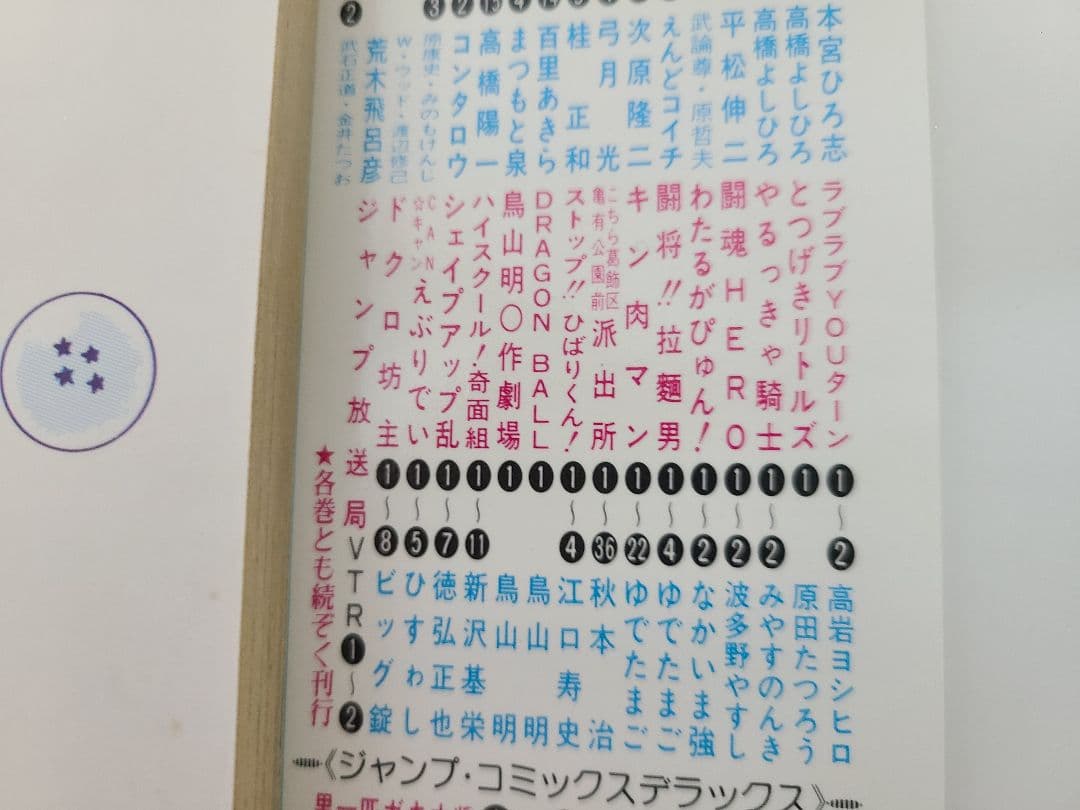 本宮ひろ志
高橋よしひろ
高橋よしひろ
平松伸二
武論尊・原哲夫
えんどコイチ
次原隆二
弓月光
桂正和
百里あきら
まつもと泉
高橋陽一
コンタロウ
原康史・みのもけんじ
W・ウッド・渡辺修己
荒木飛呂彦
武石正道・金井たつお
②
ラブラブYOUターン ①〜② 高岩ヨシヒロ
とつげきリトルズ ① 原田たつろう
やるっきゃ騎士 ①〜② みやすのんき
闘魂HERO ①〜② 波多野やすし
わたるがぴゅん! ①〜② なかいま強
闘将!!拉麵男 ①〜④ ゆでたまご
キン肉マン ①〜㉒ ゆでたまご
こちら葛飾区亀有公園前派出所 ①〜㊱ 秋本治
ストップ!!ひばりくん! ①〜④ 江口寿史
DRAGON BALL ① 鳥山明
鳥山明〇作劇場 ① 鳥山明
ハイスクール!奇面組 ①〜⑪ 新沢基栄
シェイプアップ乱 ①〜⑦ 徳弘正也
CAN☆キャンえぶりでい ①〜⑤ ひすわし
ドクロ坊主 ①〜⑧ ビッグ錠
ジャンプ放送局VTR①〜②
★各巻とも続ぞく刊行
《ジャンプ・コミックスデラックス》